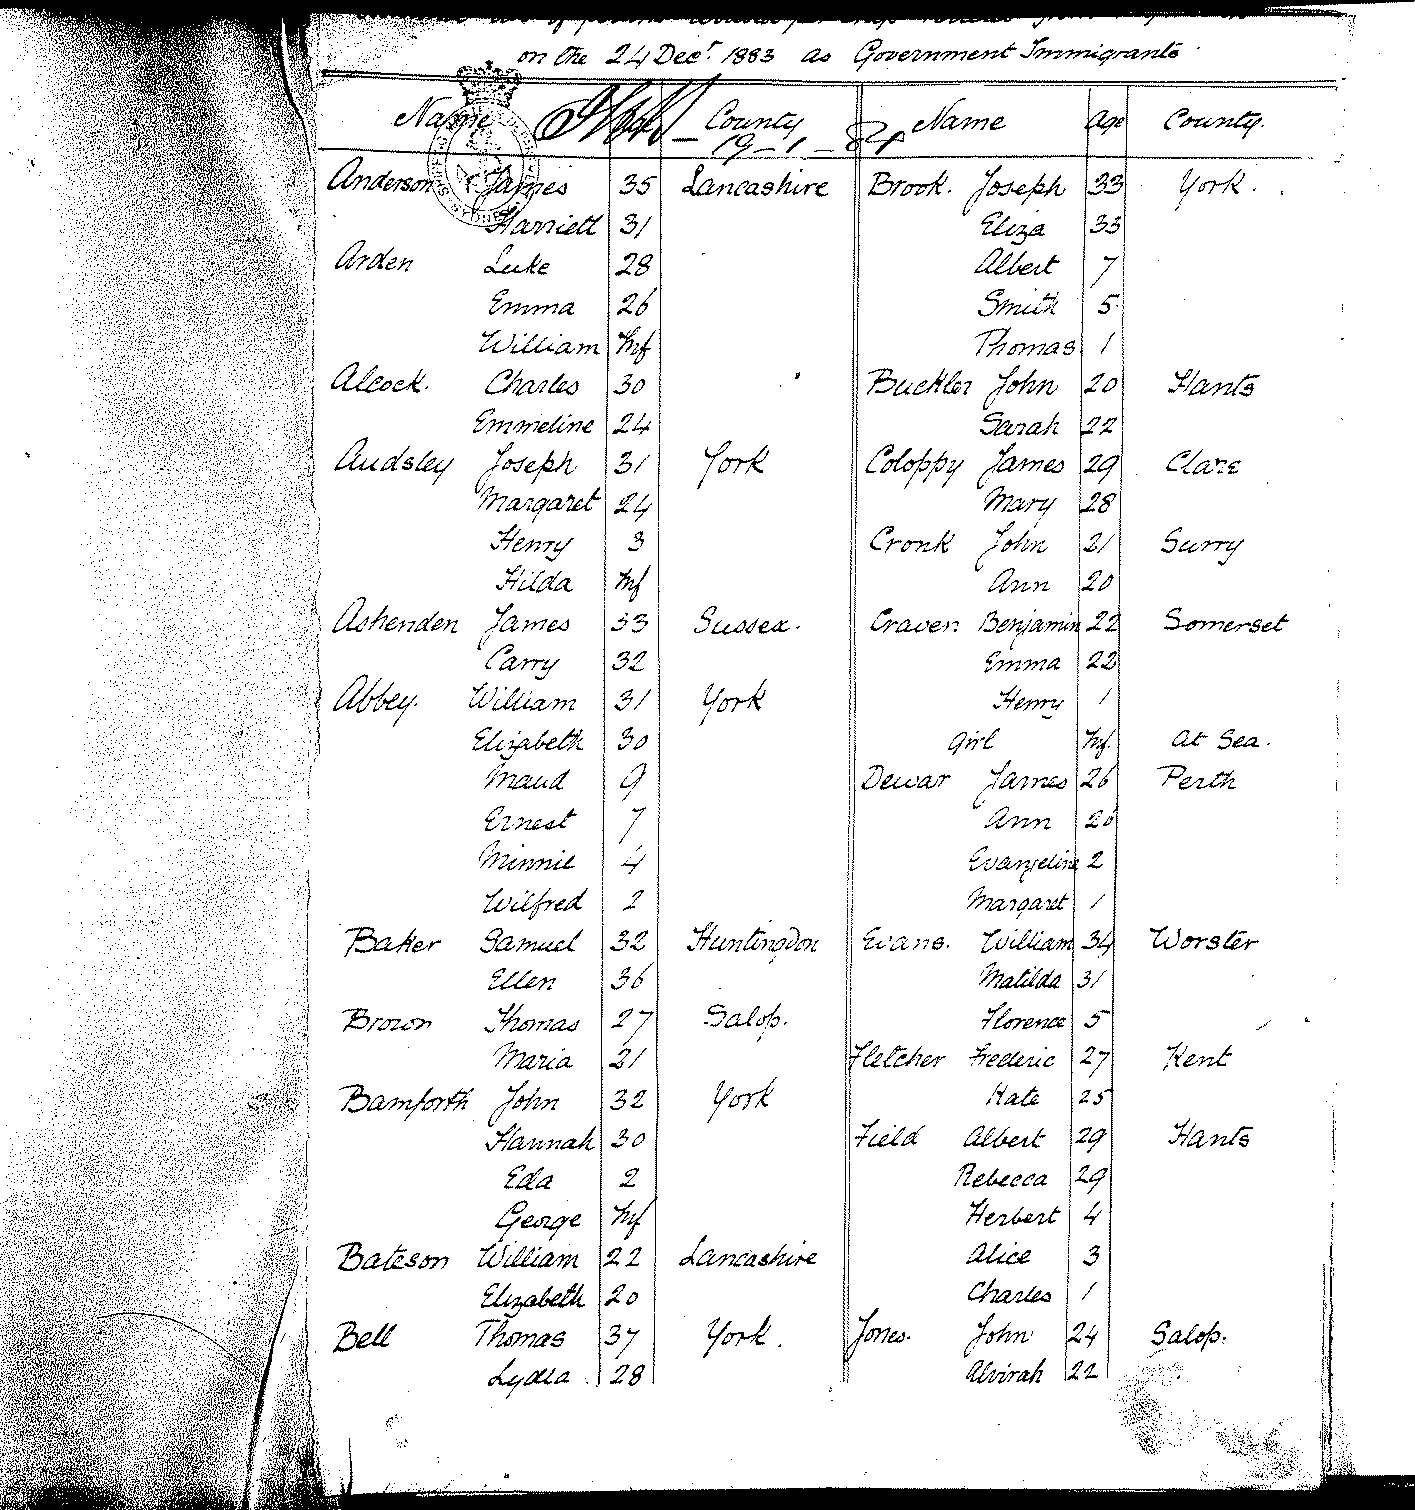 on the 24 Decr 1883 as Government Immigrants
Name County Name Age County.
19-1-84
Anderson James 35 Lancashire Brook. Joseph 33 York.
Harriett 31 Eliza 33
Arden Luke 28 Albert 7
Emma 26 Smith 5
William Inf Thomas 1
Alcock. Charles 30 Buckler John 20 Hants
Emmeline 24 Sarah 22
Audsley Joseph 31 York Coloppy James 29 Clare
Margaret 24 Mary 28
Henry 3 Cronk John 21 Surry
Hilda Inf Ann 20
Ashenden James 33 Sussex. Craven Benjamin 22 Somerset
Carry 32 Emma 22
Abbey. William 31 York Henry 1
Elizabeth 30 Girl Inf. At Sea.
Maud 9 Dewar James 26 Perth
Ernest 7 Ann 26
Minnie 4 Evangeline 2
Wilfred 2 Margaret 1
Baker Samuel 32 Huntingdon Evans. William 34 Worster
Ellen 36 Matilda 31
Brown Thomas 27 Salop. Florence 5
Maria 21 Fletcher Frederic 27 Kent
Bamforth John 32 York Kate 25
Hannah 30 Field Albert 29 Hants
Eda 2 Rebecca 29
George Inf Herbert 4
Bateson William 22 Lancashire Alice 3
Elizabeth 20 Charles 1
Bell Thomas 37 York. Jones. John 24 Salop.
Lydia 28 Alvirah 22